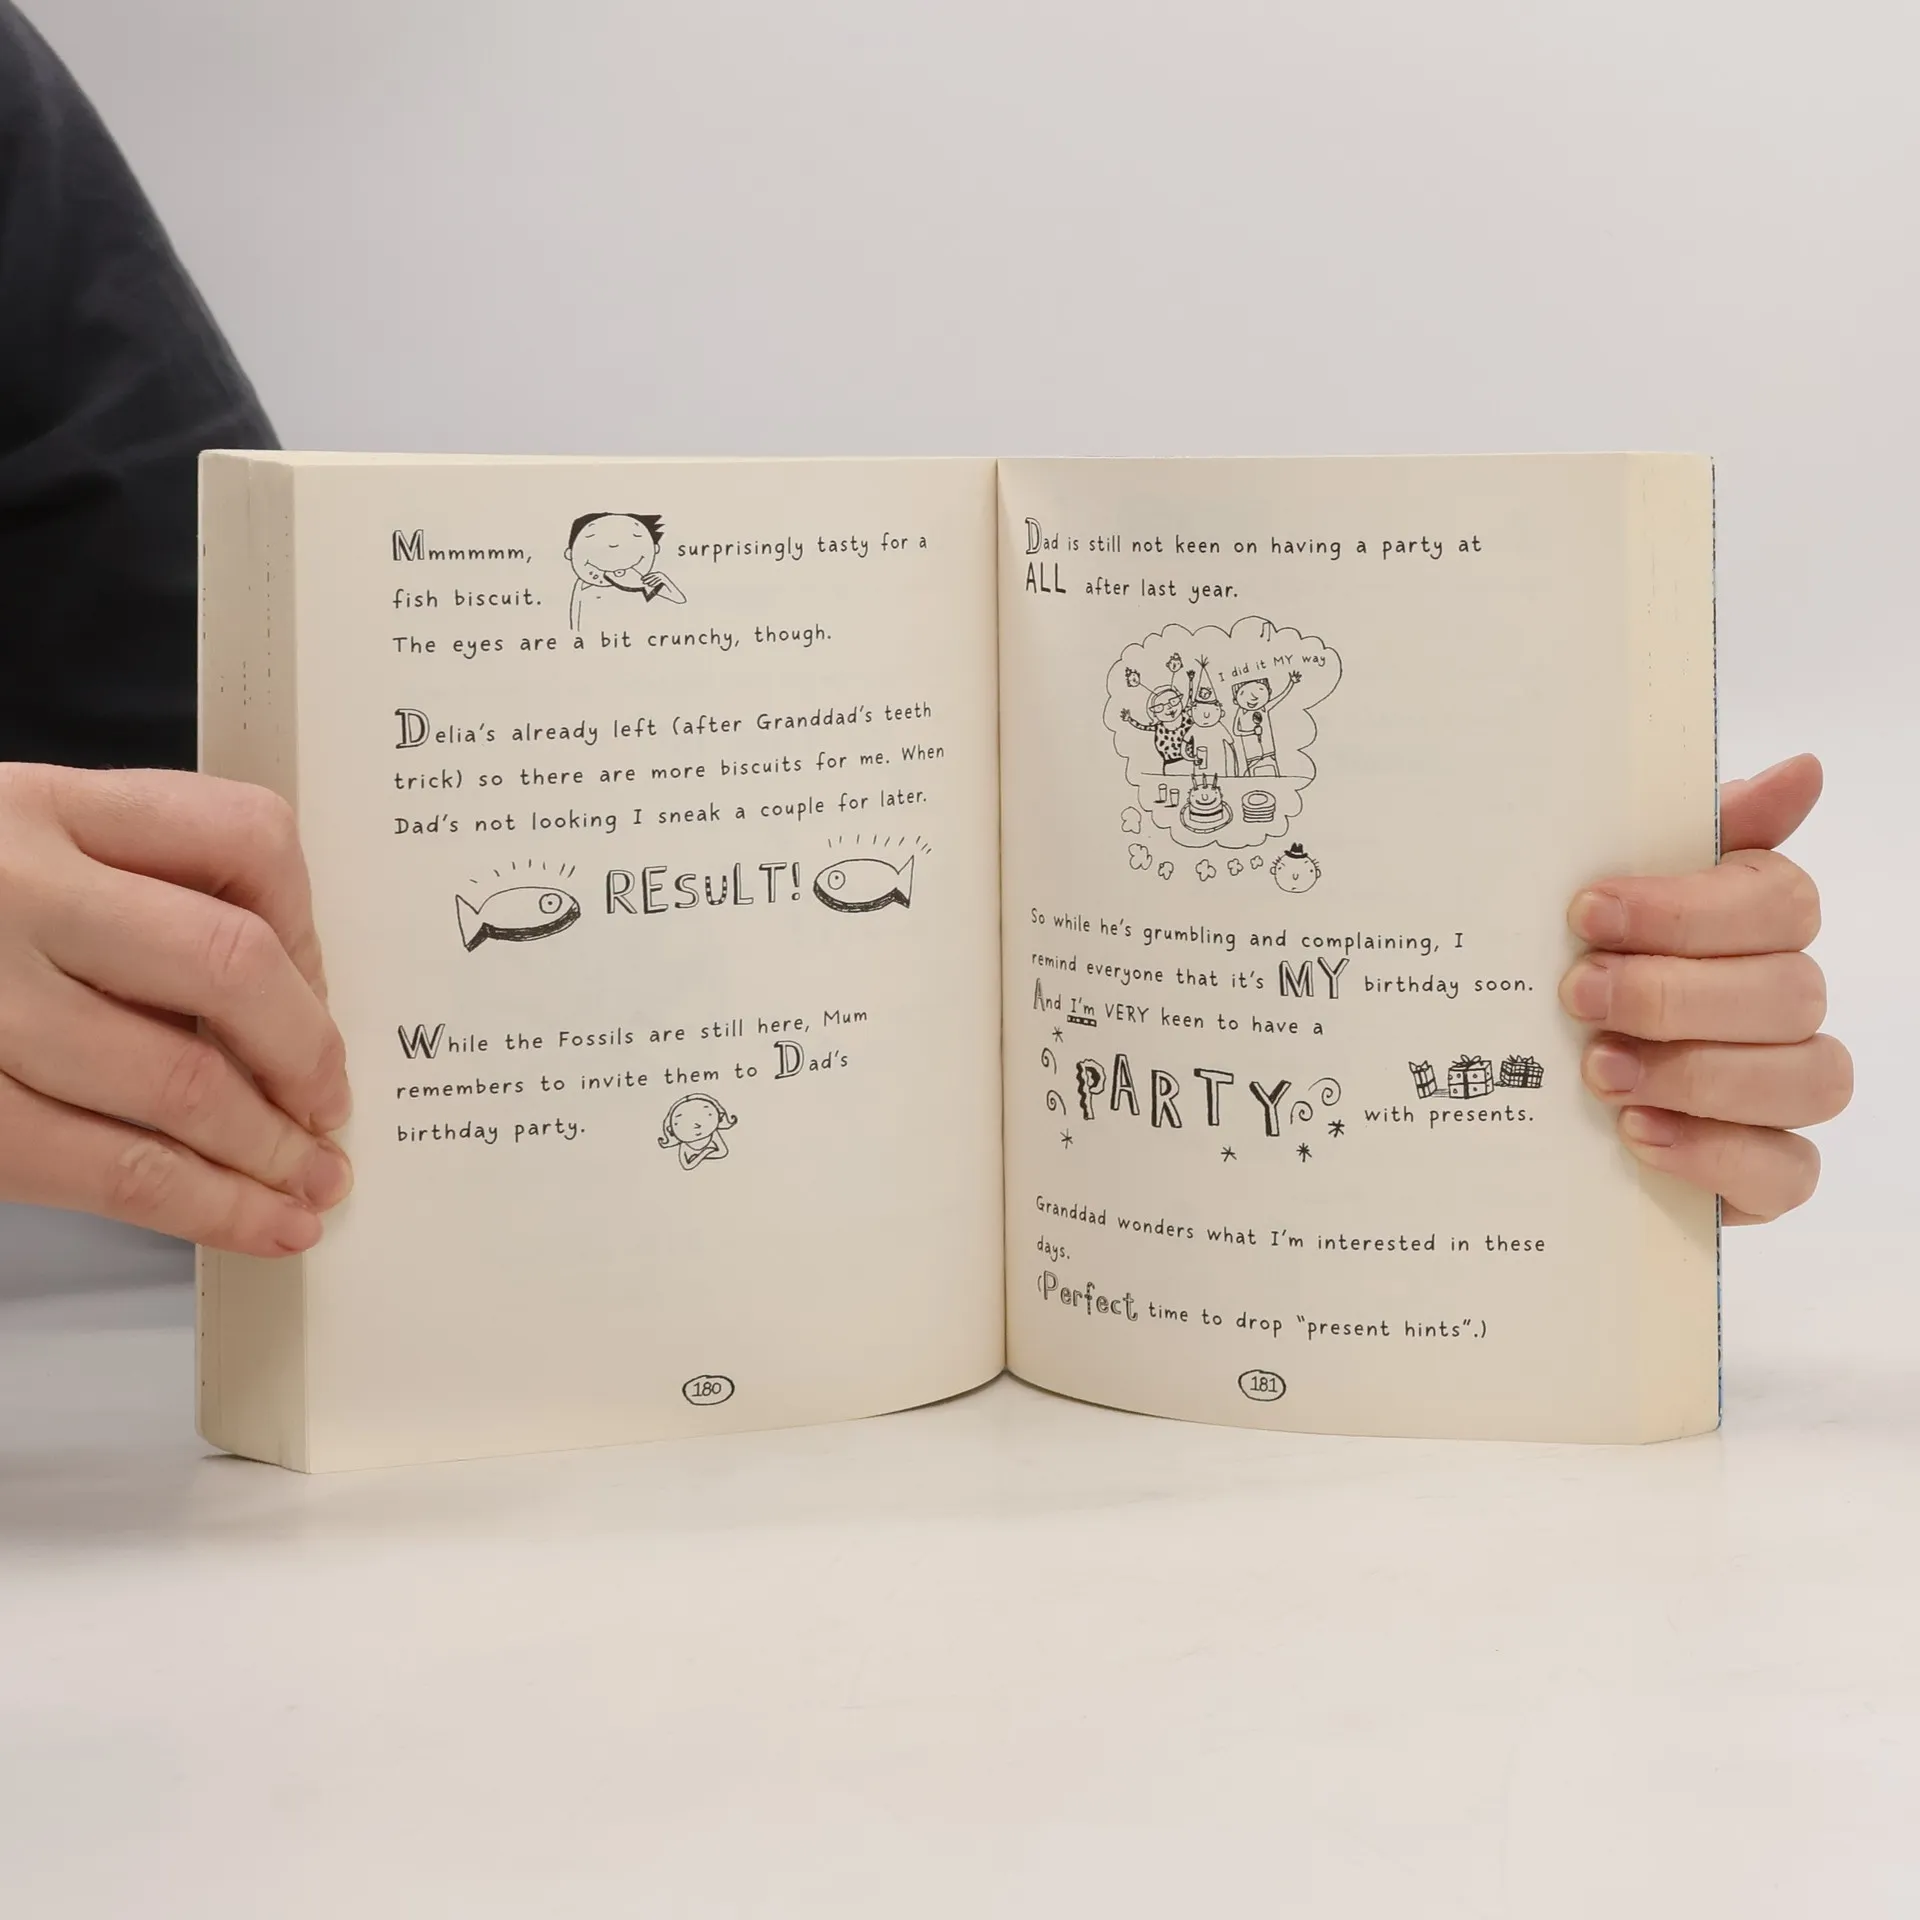 Mmmmmm, surprisingly tasty for a
fish biscuit.
The eyes are a bit crunchy, though.
Delia's already left (after Granddad's teeth
trick) so there are more biscuits for me. When
Dad's not looking I sneak a couple for later.
RESULT!
While the Fossils are still here, Mum
remembers to invite them to Dad's
birthday party.
180
Dad is still not keen on having a party at
ALL after last year.
I did it MY way
So while he's grumbling and complaining, I
remind everyone that it's MY birthday soon.
And I'm VERY keen to have a
PARTY with presents.
Granddad wonders what I'm interested in these
days.
(Perfect time to drop "present hints".)
181